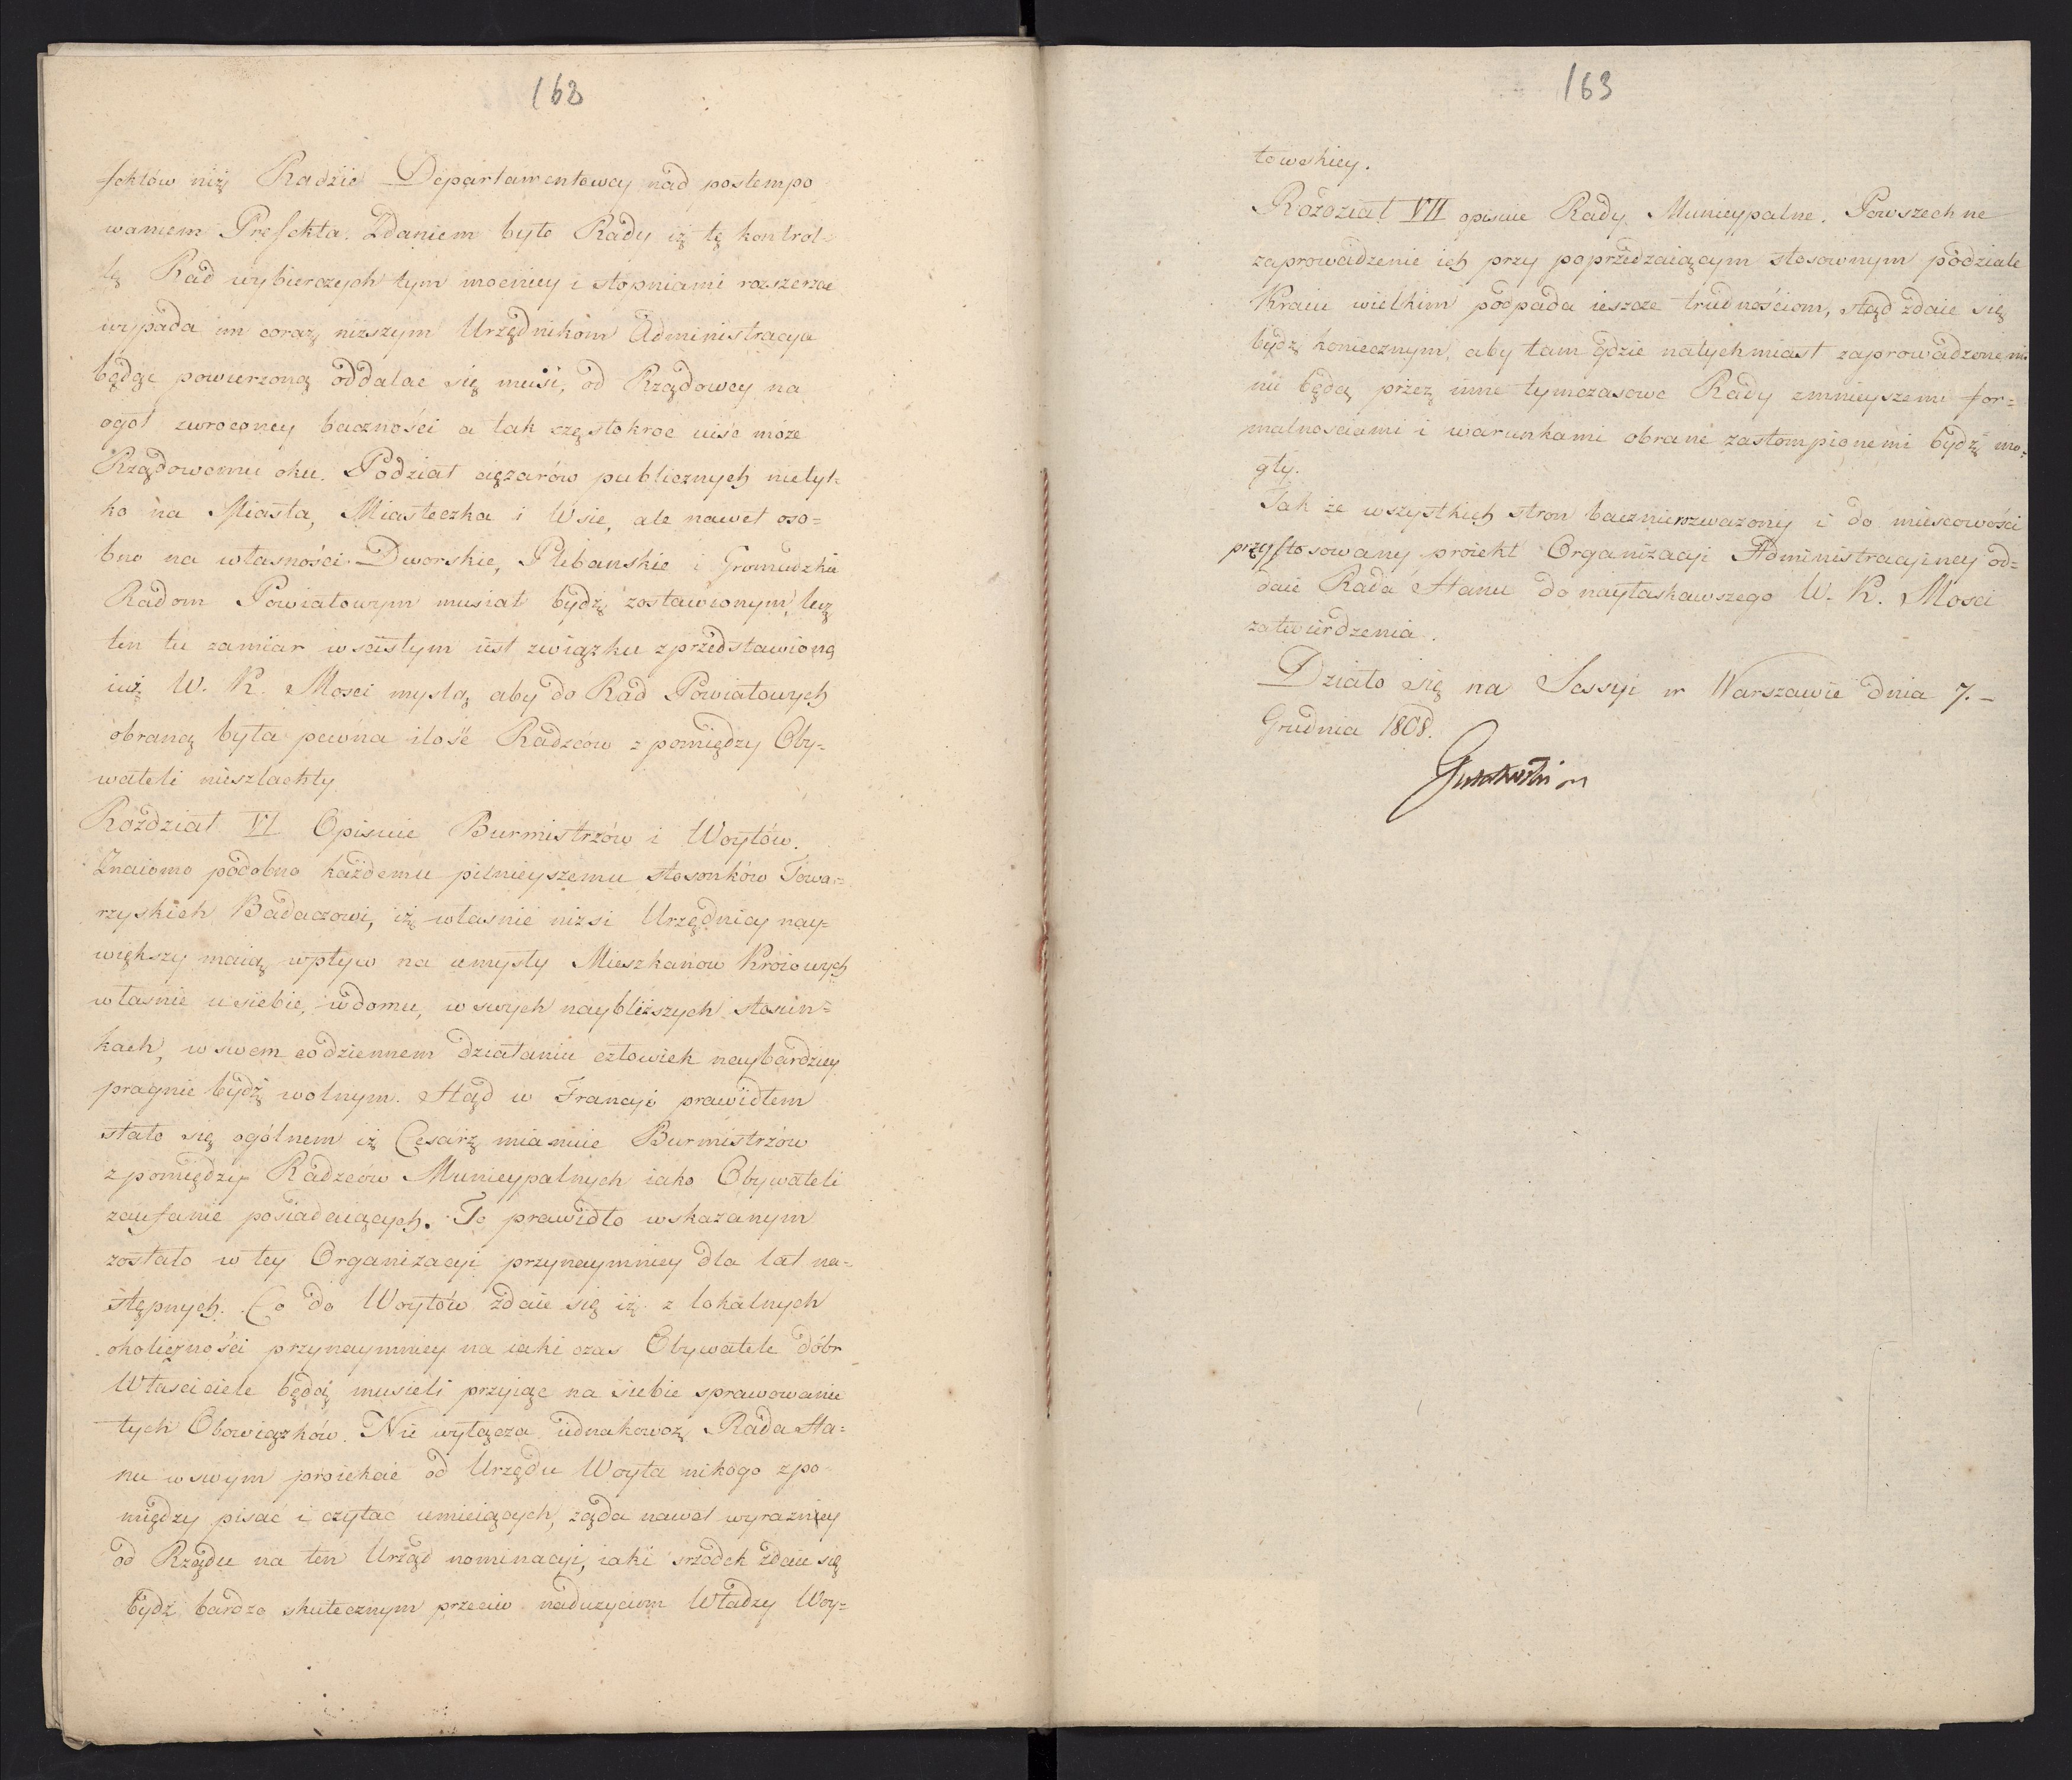 162
fektów niż Radzie Departamentowey nad postempo
waniem Prefekta. Zdaniem było Rady iż tę kontrol=
lę Rad wybierczych tym mocniey i stopniami rozszerzac
wypada im coraz niższym Urzędnikom Administracya
będąc powierzoną oddalac się musi, od Rządowey na
ogół zwróconey baczności a tak częstokroc uiśc może
Rządowemu oku. Podział ciężarów publicznych nietyl=
ko na Miasta, Miasteczka i Wsie, ale nawet oso=
bno na własności Dworskie, Plebanskie i Gromadzkie
Radom Powiatowym musiał bydź zostawionym, lecz
ten tu zamiar w scisłym iest związku z przedstawioną
iuż W. K. Mosci myslą aby do Rad Powiatowych
obraną była pewna ilość Radzców z pomiędzy Oby=
wateli nieszlachty
Rozdział VI Opisuie Burmistrzów i Woytów.
Znaiomo podobno każdemu pilnieyszemu stosonków Towa=
rzyskich Badaczowi, iż własnie niżsi Urzędnicy nay=
większy maią wpływ na umysły Mieszkańców Kraiowych
własnie u siebie, w domu, w swych naybliższych stosun=
kach, w swem codziennem działaniu człowiek naybardziey
pragnie bydź wolnym. Stąd w Francyi prawidłem
stało się ogólnem iż Cesarz mianuie Burmistrzów
z pomiędzy Radzców Municypalnych iako Obywateli
zaufanie posiadaiących. To prawidło wskazanym
zostało w tey Organizacyi przynaymniey dla lat na=
stępnych. Co do Woytów zdaie się iż z lokalnych
okoliczności przynaymniey na iaki czas Obywatele dóbr
Własciciele będą musieli przyiąc na siebie sprawowanie
tych Obowiązków. Nie wyłącza iednakowoż Rada Sta=
nu w swym proiekcie od Urzędu Woyta nikogo z po
między pisać i czytac umieiących, żąda nawet wyrazniey
od Rządu na ten Urząd nominacyi, iaki srzodek zdaie się
bydź bardzo skutecznym przeciw nadużyciom Władzy Woy=
163
towskiey.
Rozdział VII opisuie Rady Municypalne. Powszechne
zaprowadzenie ich przy poprzedzaiącym stosownym podziale
Kraiu wielkim podpada ieszcze trudnościom, stąd zdaie się
bydź koniecznym, aby tam gdzie natychmiast zaprowadzonemi
nie będą przez inne tymczasowe Rady zmnieyszemi for=
malnosciami i warunkami obrane zastompionemi bydź mo=
gły.
Tak ze wszystkich stron bacznierozważony i do miescowości
przystosowany proiekt Organizacyi Administracyiney od=
daie Rada Stanu do nayłaskawszego W. K. Mosci
zatwierdzenia.
Działo się na Sessyi w Warszawie dnia 7. -
Grudnia 1808.
Gutakowski